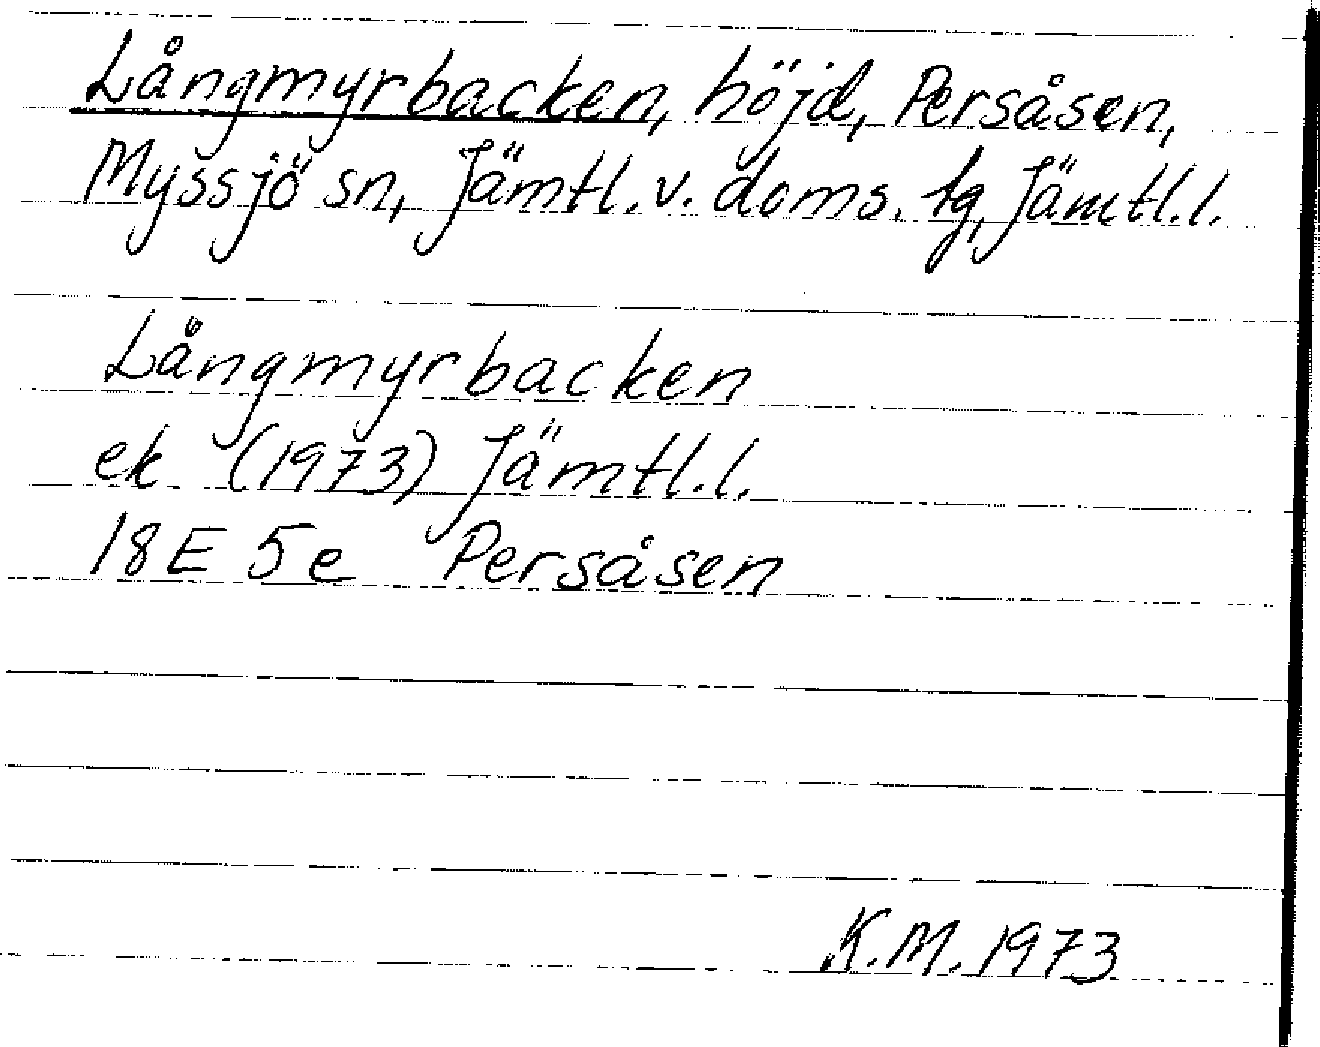 Långmyrbacken, höjd, Persåsen,
Myssjö sn, Jämtl. v. doms. tg, Jämtl. l.
Långmyrbacken
ek (1973) Jämtl. l.
18E 5e Persåsen
K.M. 1973